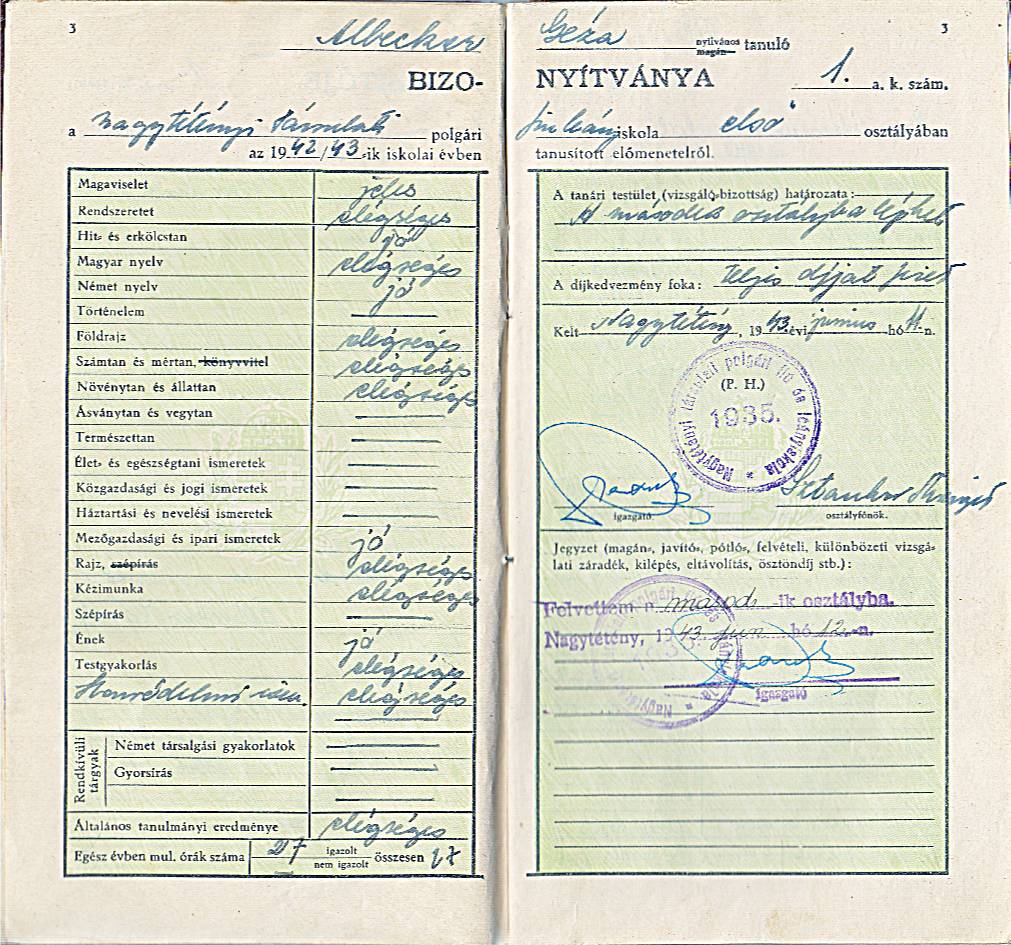 3
Albecker
BIZO-
a nagytétényi társulati polgári
az 1942/43-ik iskolai évben
Magaviselet jeles
Rendszeretet elégséges
Hit- és erkölcstan jó
Magyar nyelv elégséges
Német nyelv jó
Történelem
Földrajz elégséges
Számtan és mértan, könyvvitel elégséges
Növénytan és állattan elégséges
Ásványtan és vegytan
Természettan
Élet- és egészségtani ismeretek
Közgazdasági és jogi ismeretek
Háztartási és nevelési ismeretek
Mezőgazdasági és ipari ismeretek jó
Rajz, szépírás elégséges
Kézimunka elégséges
Szépírás
Ének jó
Testgyakorlás elégséges
Honvédelmi elégséges
Rendkívüli tárgyak
Német társalgási gyakorlatok
Gyorsírás
Általános tanulmányi eredménye elégséges
Egész évben mul. órák száma 27 igazolt
nem igazolt összesen 27
3
Géza nyilvános
magán tanuló
NYÍTVÁNYA 1. a. k. szám.
iskola első osztályában
tanusított előmenetelről.
A tanári testület (vizsgáló-bizottság) határozata:
A második osztályba léphet
A díjkedvezmény foka: teljes díjat fizet
Kelt Nagytétény, 1943. évi junius hó n.
(P. H.)
Nagytétényi társulati polgári fiú és leányiskola *
1935.
igazgató.
osztályfőnök.
Jegyzet (magán-, javító-, pótló-, felvételi, különbözeti vizsgá-
lati záradék, kilépés, eltávolítás, ösztöndíj stb.):
Felvettem a másod -ik osztályba.
Nagytétény, 1943 jun. hó 12.-n.
igazgató